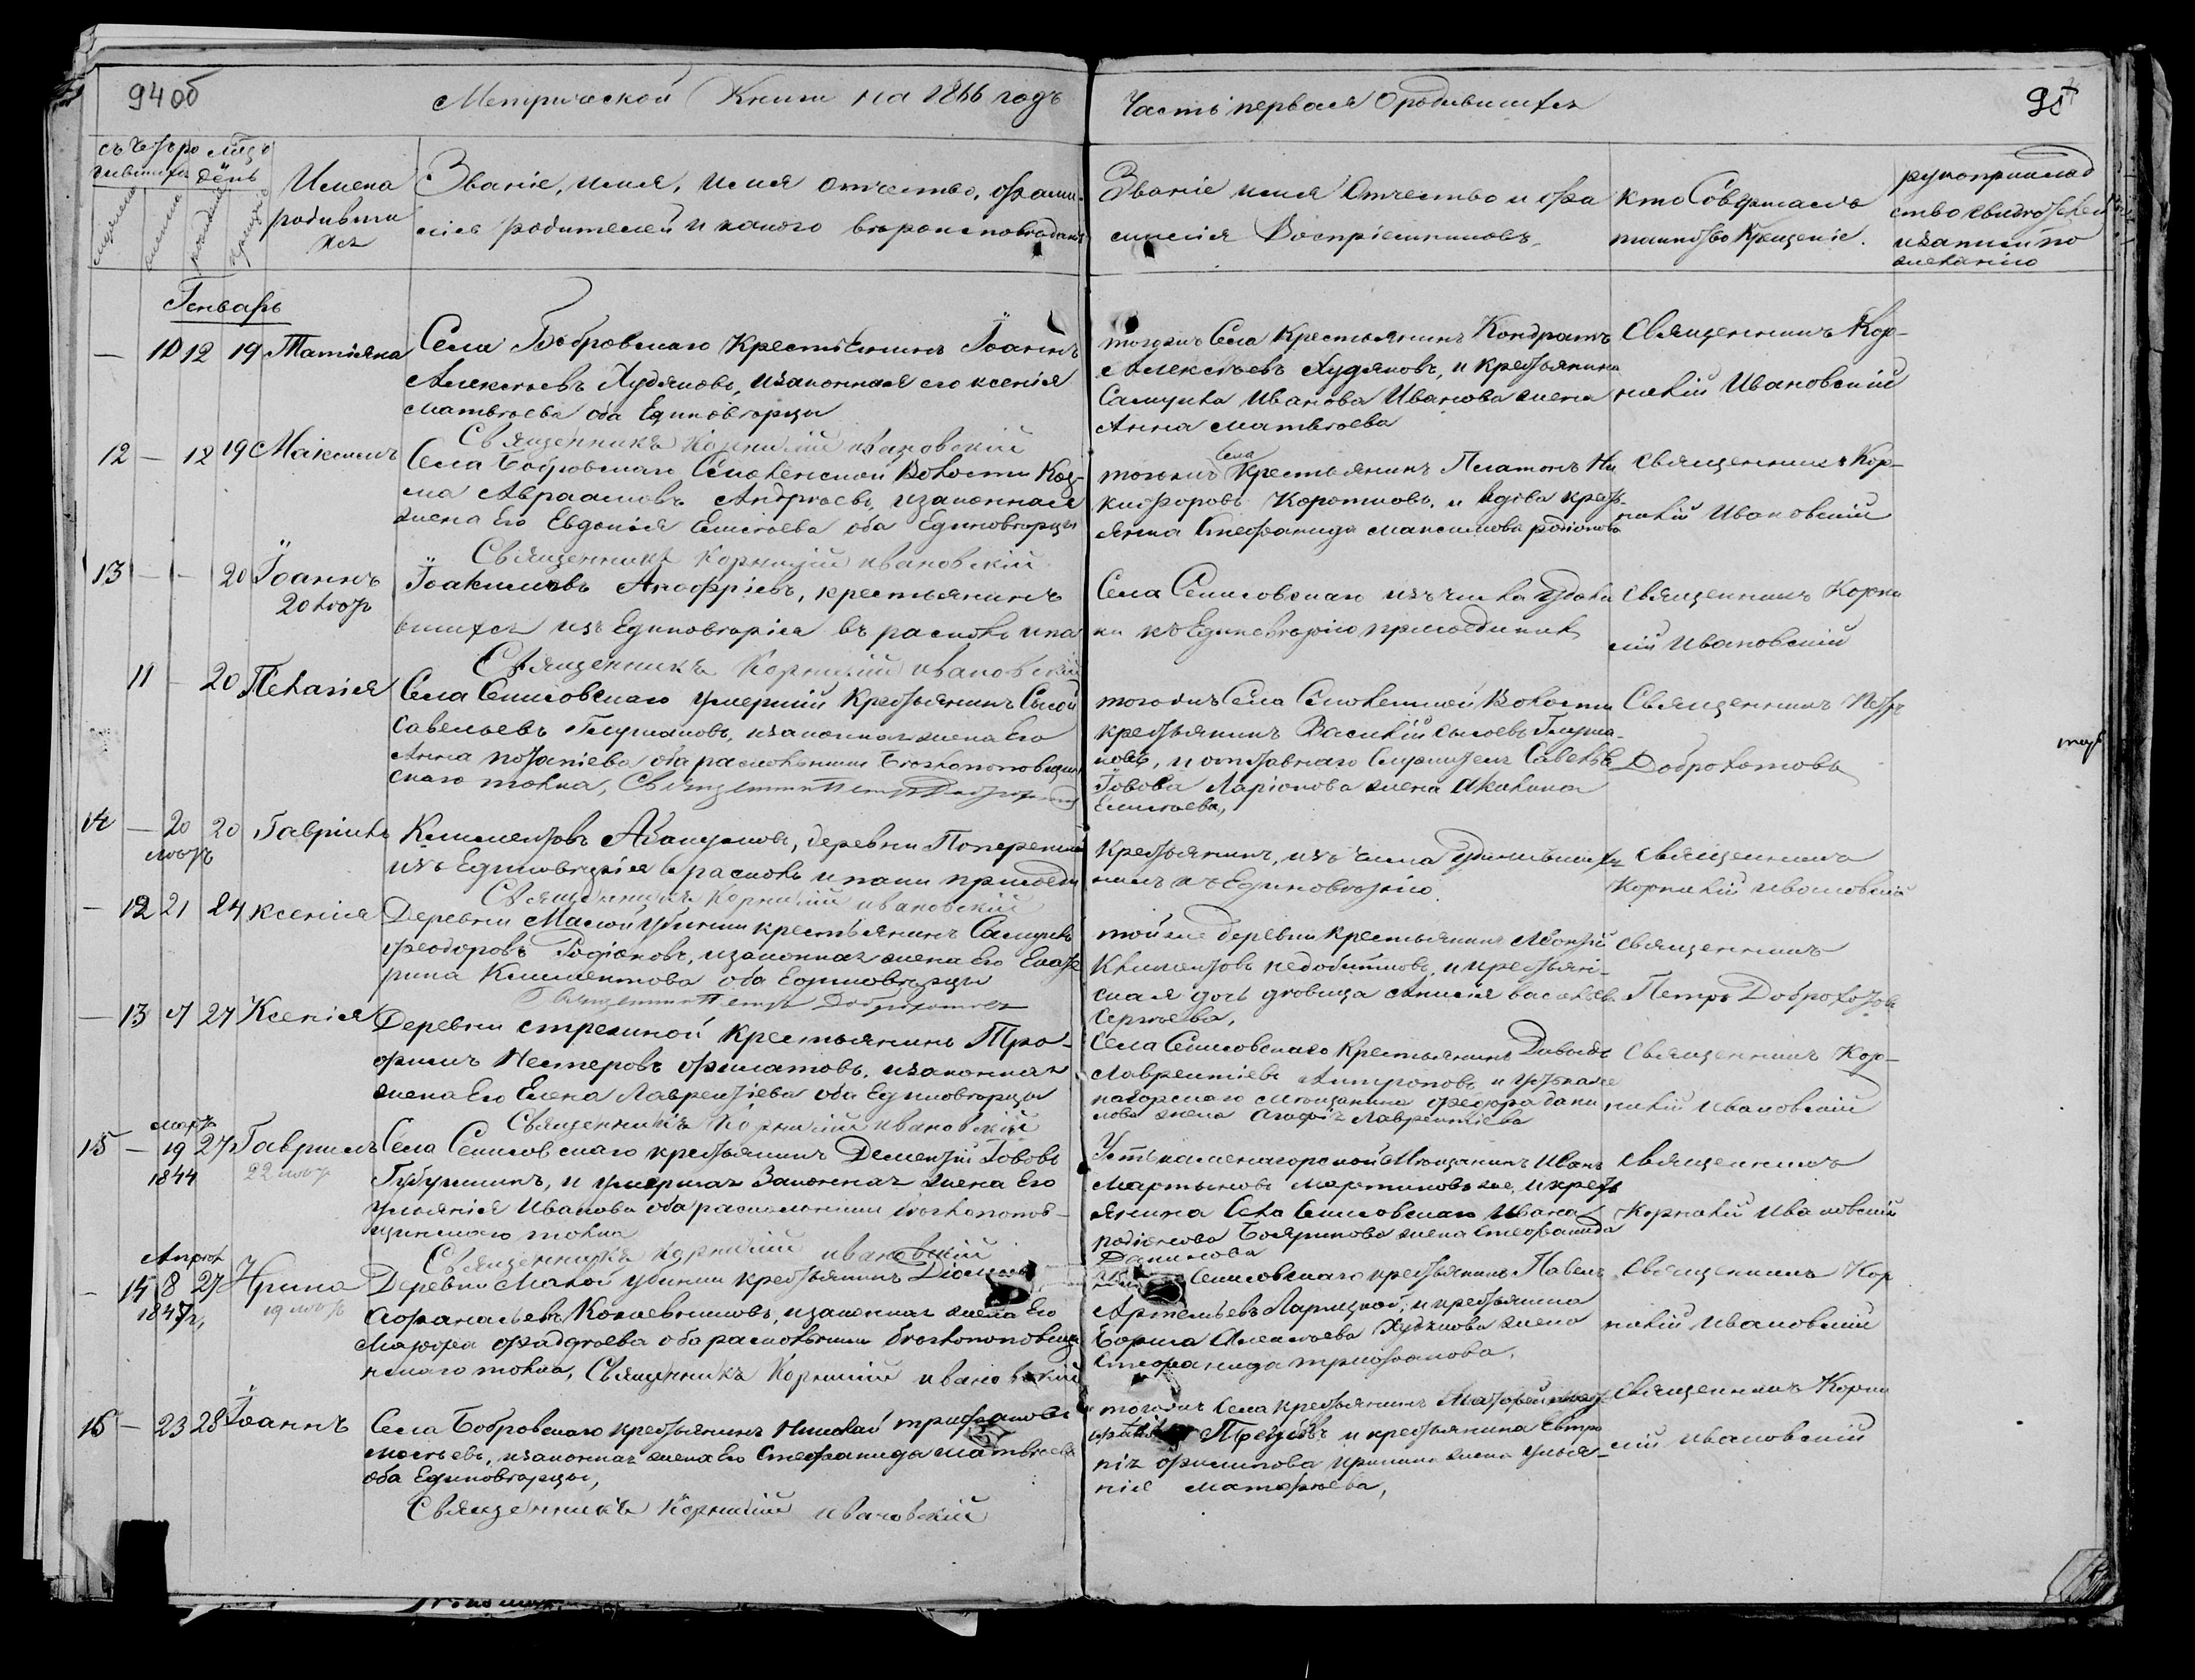 94об
Метрической Книги на 1866 годъ
Часть первая О родившихся
95
Имена родивши хся
Званіе, имя, имя отчество, фами-
лія родителей и какого вероисповеданія
Званіе имя Отчество и фа
милія Воспріемниковъ
кто Совершалъ
таинство Крещеніе.
Генварь
— 10 12 19 Татіяна
Села Бобровскаго Крестьянинъ Іоаннъ
Алексѣевъ Худяковъ, и законная его ксенія
Матвѣева оба Единовѣрцы
Священникъ Корнилій ивановскій
тогожъ Села Крестьянинъ Кондратъ
Алексѣевъ Худяковъ, и крестьянина
Самуила Иванова Иванова жена
Анна Матвѣева
Священникъ Кор-
нилій Ивановскій
12 — 12 19 Максимъ
Села Бобровскаго Смоленской Волости Коз-
ма Авраамовъ Андрѣевъ, и законная
жена Его Евдокія Елисѣева оба Единовѣрцы
Священникъ Корнилій ивановскій
тогожъ Села Крестьянинъ Платонъ Ни
кифоровъ Коротковъ, и вдова крест-
янка Стефанида Максимова родіонова
Священникъ Кор-
нилій Ивановскій
13 — — 20 Іоаннъ
20 лѣтъ
Іоакимовъ Анофріевъ, крестьянинъ
вшихся изъ Единовѣрія въ расколъ и па
Священникъ Корнилій ивановскій
Села Секисовскаго изъ числа удали
ки къ Единовѣрію присоединилъ
Священникъ Корни
лій Ивановскій
11 — 20 Пелагія
Села Секисовскаго умершій Крестьянинъ Сысой
Савельевъ Глушаковъ, и законная жена Его
Анна потапіева оба раскольники Беспоповщин
скаго толка, Священникъ Петръ Доброхотовъ
тогожъ Села Смоленской Волости
крестьянинъ Василій Сысоевъ Глуша-
ковъ, и отставнаго Служителя Савелья
Іовова Ларіонова жена Акилина
Елисѣева,
Священникъ Петръ
Доброхотовъ
14 — 20 20 Гавріилъ
Климентовъ Абакумовъ, деревни Поперечной
изъ Единовѣрія в расколъ и паки присоеди
Священникъ Корнилій ивановскій
Крестьянинъ, изъ числа удалившихся
нилъ къ Единовѣрію.
Священникъ
Корнилій ивановскій
— 12 21 24 ксенія
Деревни Малой убинки крестьянинъ Самуилъ
феодоровъ Родіоновъ, и законная жена Его Екате
рина Климентова оба Единовѣрцы
Священникъ Петръ Доброхотовъ
той же деревни крестьянинъ Леонтій
Климентовъ недобитковъ, и крестьяни-
ская дочь дѣвица Анисія васильева
Сергѣева,
Священникъ
Петръ Доброхотовъ
— 13 27 Ксенія
Деревни стрежной крестьянинъ Тро-
фимъ Нестеровъ филатовъ, и законная
жена Его Елена Лаврентіева оба Единовѣрцы
Священникъ Корнилій ивановскій
Села Секисовскаго Крестьянинъ Давыдъ
Лаврентіевъ Антроповъ и устькаме
ногорскаго мѣщанина федора дани
лова жена Агафія Лаврентіева
Священникъ Кор-
нилій ивановскій
мартъ
15 — 19 27 Гавріилъ
1844 22 лѣтъ
Села Секисовскаго крестьянинъ Дементій Іововъ
Губушкинъ, и умершая Законная жена Его
ульянія Иванова оба раскольники беспопов-
щинскаго толка
Священникъ Корнилій ивановскій
Устькаменагорской Мѣщанинъ Иванъ
Мартыновъ Мартыновъ же, и крест
янина Села Секисовскаго Ивана
родіонова Бояринова жена Стефанида
Данилова
Священникъ
Корнилій Ивановскій
Апрѣль
— 14 8 27 Ирина
1847г, 19 лѣтъ
Деревни Малой убинки крестьянинъ Діомидъ
Афанасьевъ Колаевниковъ, и законная жена Его
Марфа фаддѣева оба раскольники беспоповщи
нскаго толка, Священникъ Корнилій ивановскій
Секисовскаго крестьянинъ Павелъ
Артемьевъ Ларицкой, и крестьянина
Бориса Алексѣева Худякова жена
Стефанида трифонова.
Священникъ Кор
нилій ивановскій
16 — 23 28 Іоаннъ
Села Бобровскаго крестьянинъ Николай трифановъ
, и законная жена Его Стефанида Матвѣева
оба Единовѣрцы,
Священникъ Корнилій ивановскій
тогожъ Села крестьянинъ
и крестьянина Евтро
пія филипова жена улья-
нія Матфѣева,
Священникъ Корни
лій ивановскій